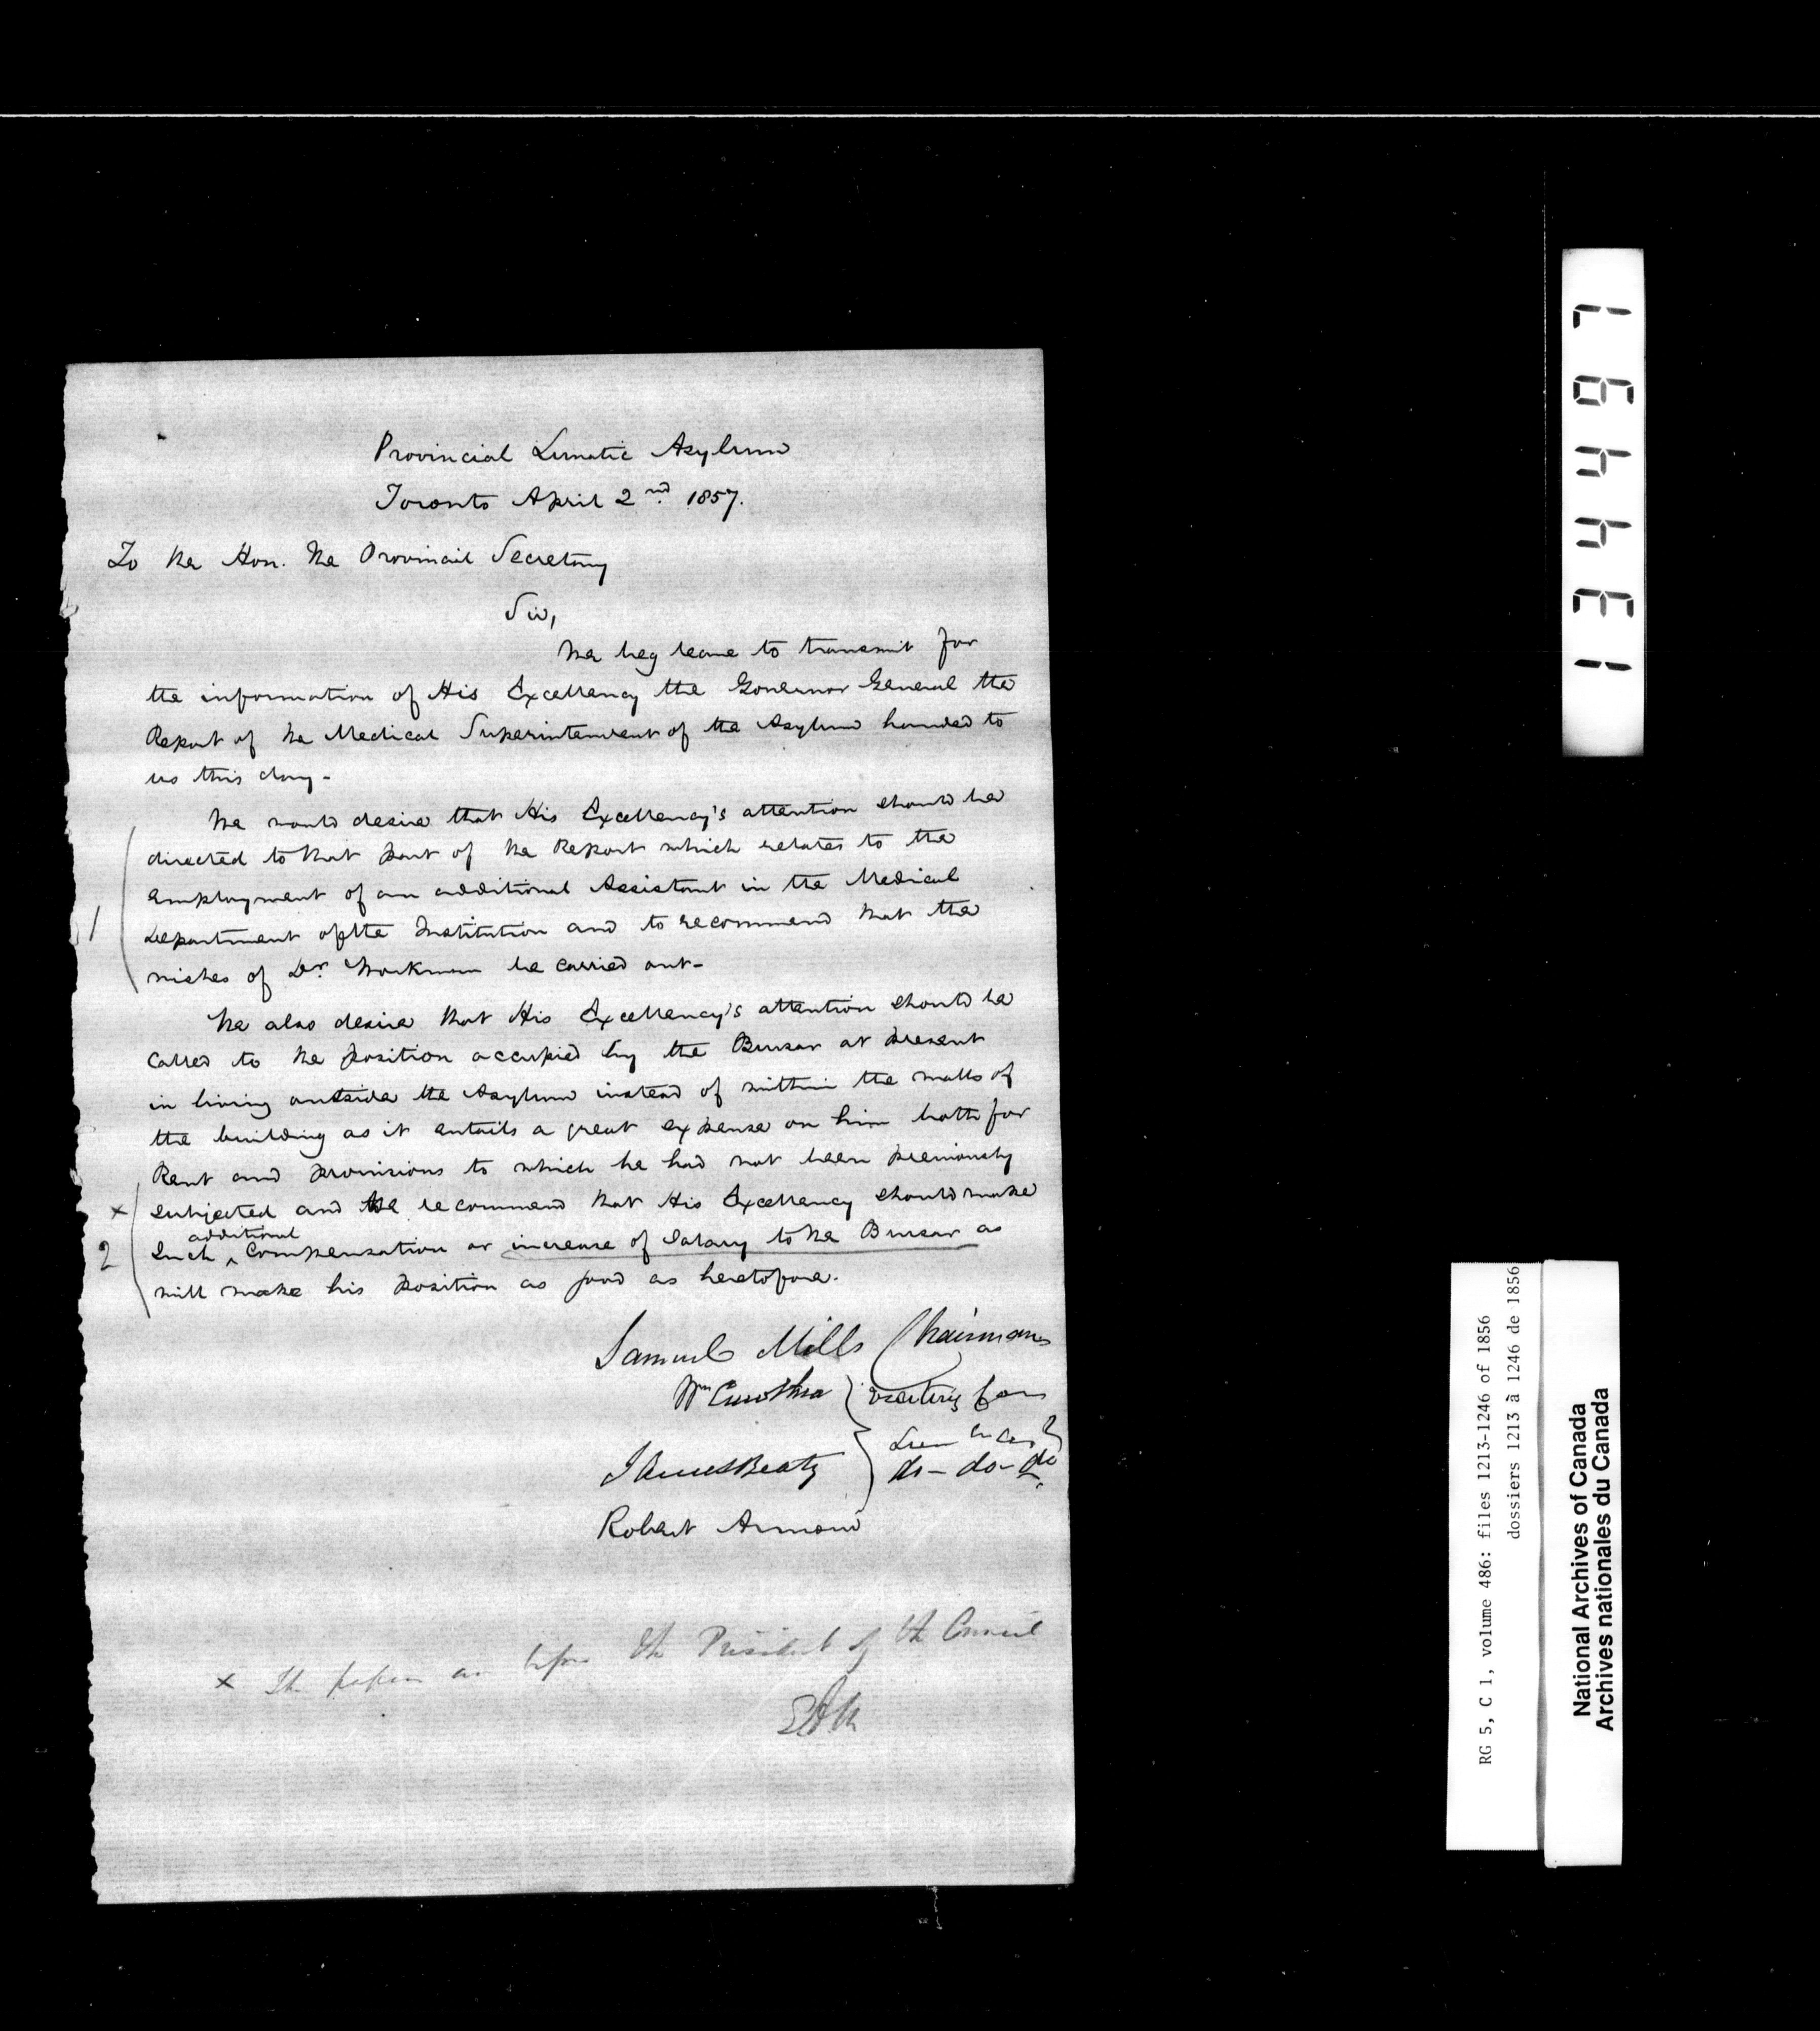 Provincial Lunatic Asylum
Toronto April 2nd 1857.
To the Hon. the Provincial Secretary
Sir,
We beg leave to transmit for
the information of His Excellency the Governor General the
Report of the Medical Superintendent of the Asylum handed to
us this day-
We would desire that His Excellency's attention should be
directed to that part of the Report which relates to the
employment of an additional Assistant in the Medical
1
Department of the Institution and to recommend that the
wishes of Dr. Workman be carried out-
We also desire that His Excellency's attention should be
called to the position occupied by the Bursar at present
in living outside the Asylum instead of within the walls of
the building as it entails a great expense on him both for
Rent and provisions to which he had not been previously
x subjected and We recommend that His Excellency should make
additional
2 Such ^ Compensation or increase of Salary to the Bursar as
will make his position as good as heretofore.
Samuel Mills Chairman
Wm visiting Com
James Beaty do- do- do
Robert Armour
x The papers are before the President of the Council
134497
RG 5, C 1, volume 486: files 1213-1246 of 1856
dossiers 1213 à 1246 de 1856
National Archives of Canada
Archives nationales du Canada